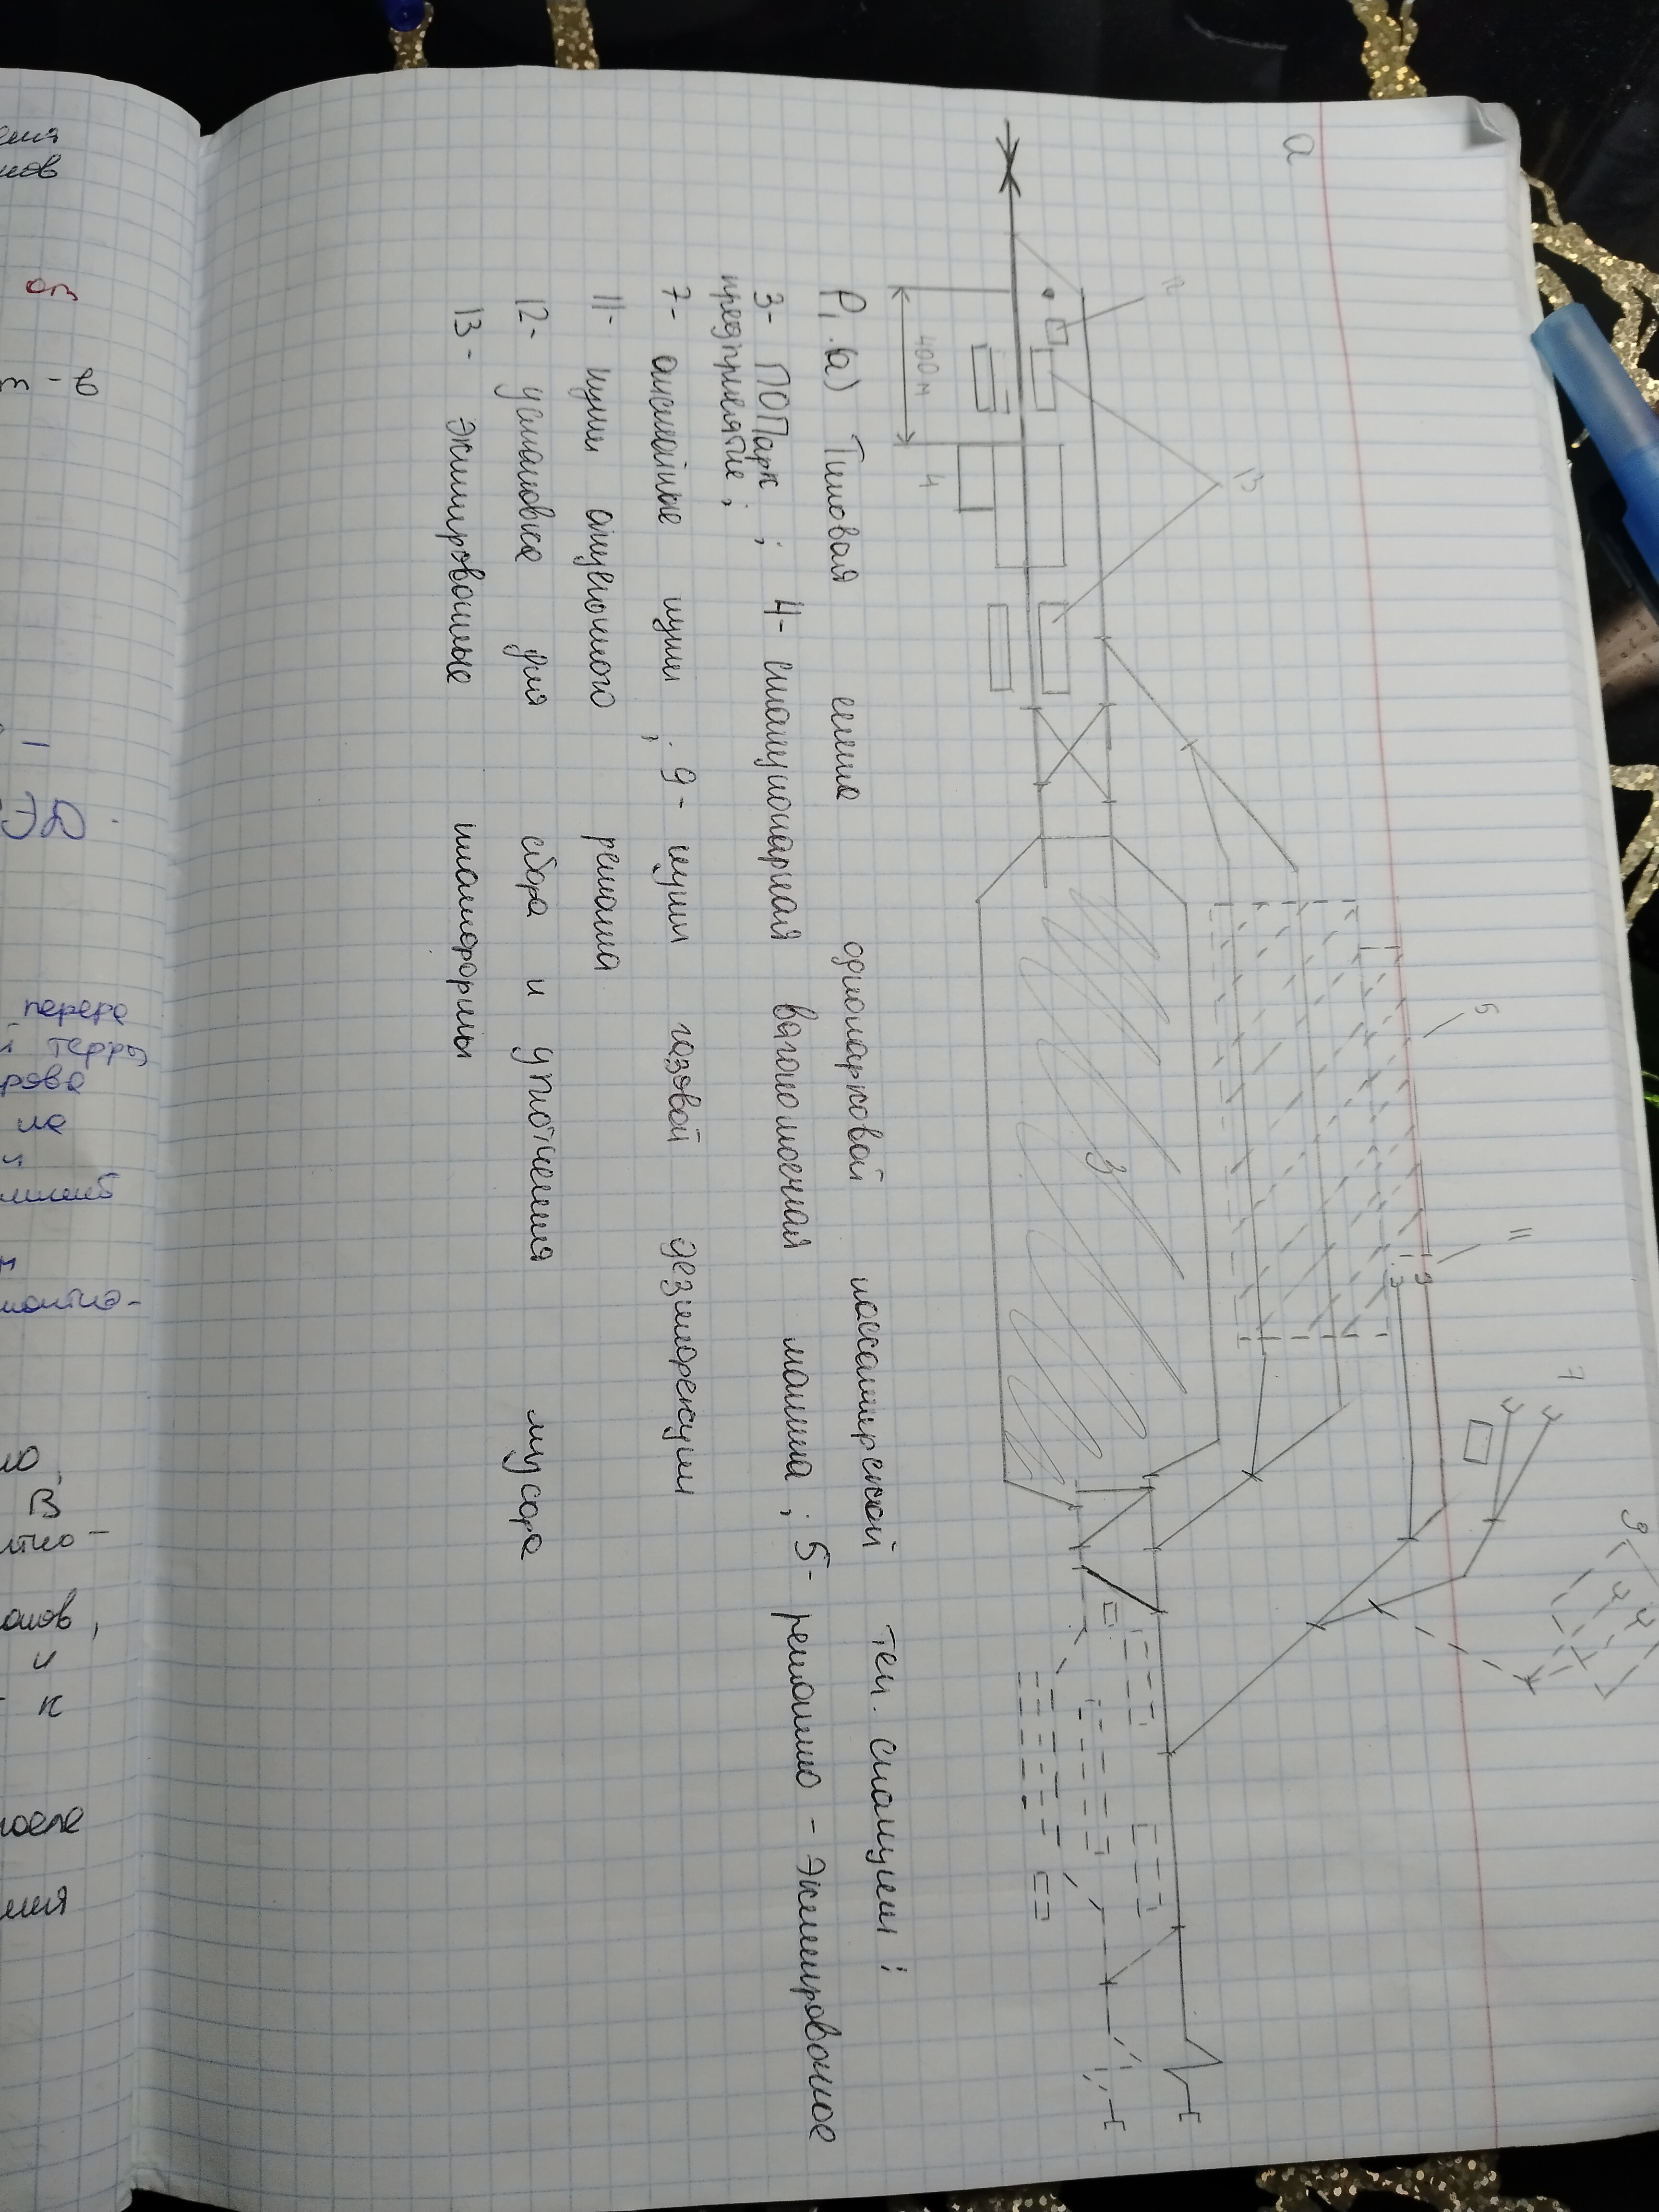 а
12
13
5
11
7
9
3
400 м
4
Р1.(а) Типовая схема однопарковой пассажирской тех. станции:
3- ПОПарк ; 4- стационарная вагономоечная машина ; 5- ремонтно - экипировочное
предприятие ;
7- отстойные пути ; 9- пути газовой дезинфекции
11- пути отцепочного ремонта
12- установка для сбора и уплотнения мусора
13 - экипировочные платформы
ения
от
перера
терри
рова
на
и
монтно-
ю,
В
тно-
и
- к
после
ения